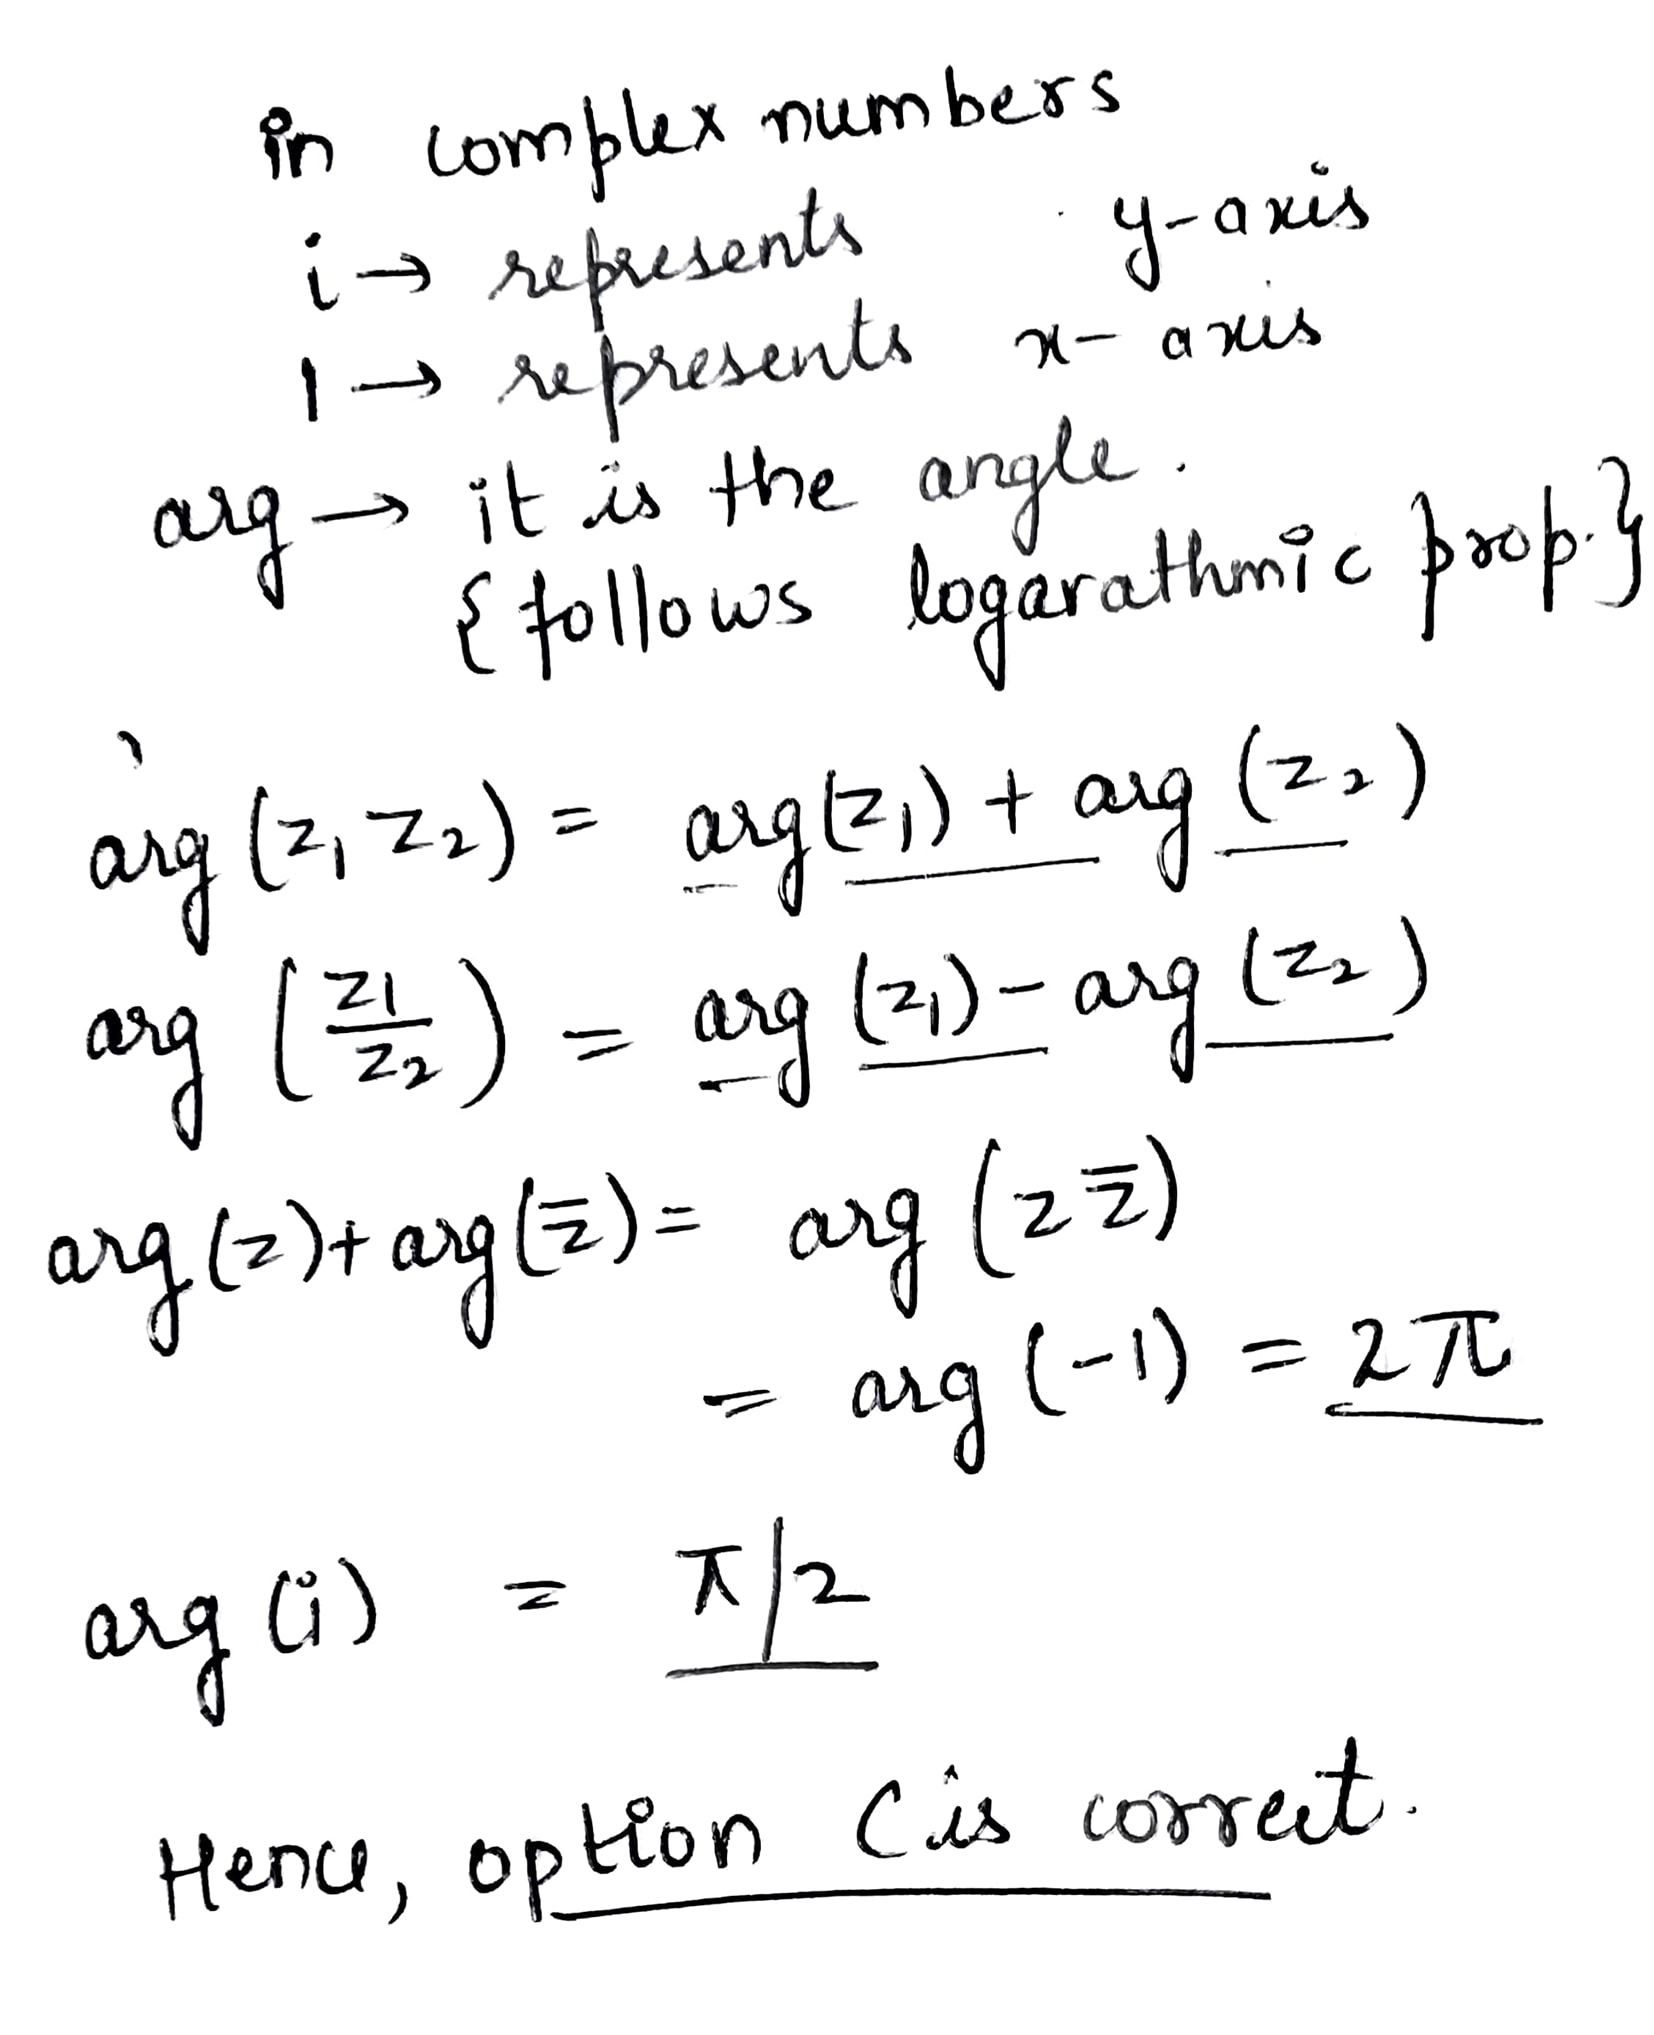 in complex numbers
i → represents y-axis
1 → represents x-axis
arg → it is the angle.
{follows logarathmic prop.}
arg (z₁ z₂) = arg(z₁) + arg (z₂)
arg (z₁/z₂) = arg (z₁) - arg (z₂)
arg (z) + arg (z̄) = arg (z z̄)
= arg (-1) = 2π
arg (i) = π/2
Hence, option C is correct.